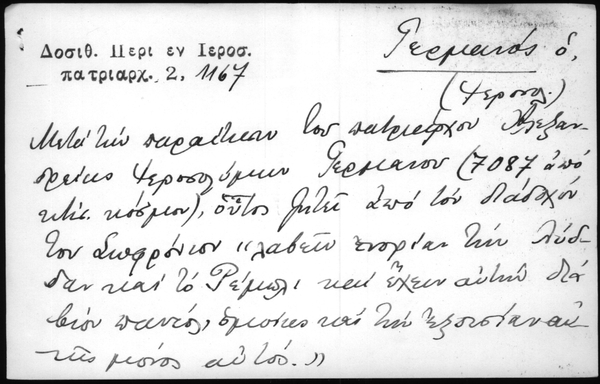 Δοσιθ. Περι εν Ιεροσ.
πατριαρχ. 2, 1167
Γερμανός ὁ,
(Ἱεροσολ.)
Μετὰ τὴν παραίτησιν τοῦ πατριάρχου Ἀλεξαν-
δρείας Ἱεροσολύμων Γερμανοῦ (7087 ἀπὸ
κτίσ. κόσμου), οὗτος ζητεῖ ἀπὸ τὸν διάδοχόν
του Σωφρόνιον «λαβεῖν ἐνορίαν τὴν Λύδ-
δαν καὶ τὸ Ῥέμπλι καὶ ἔχειν αὐτὴν διὰ
βίου παντός, ὁμοίως καὶ τὴν ἐξουσίαν
τῆς μονῆς αὐτοῦ.»